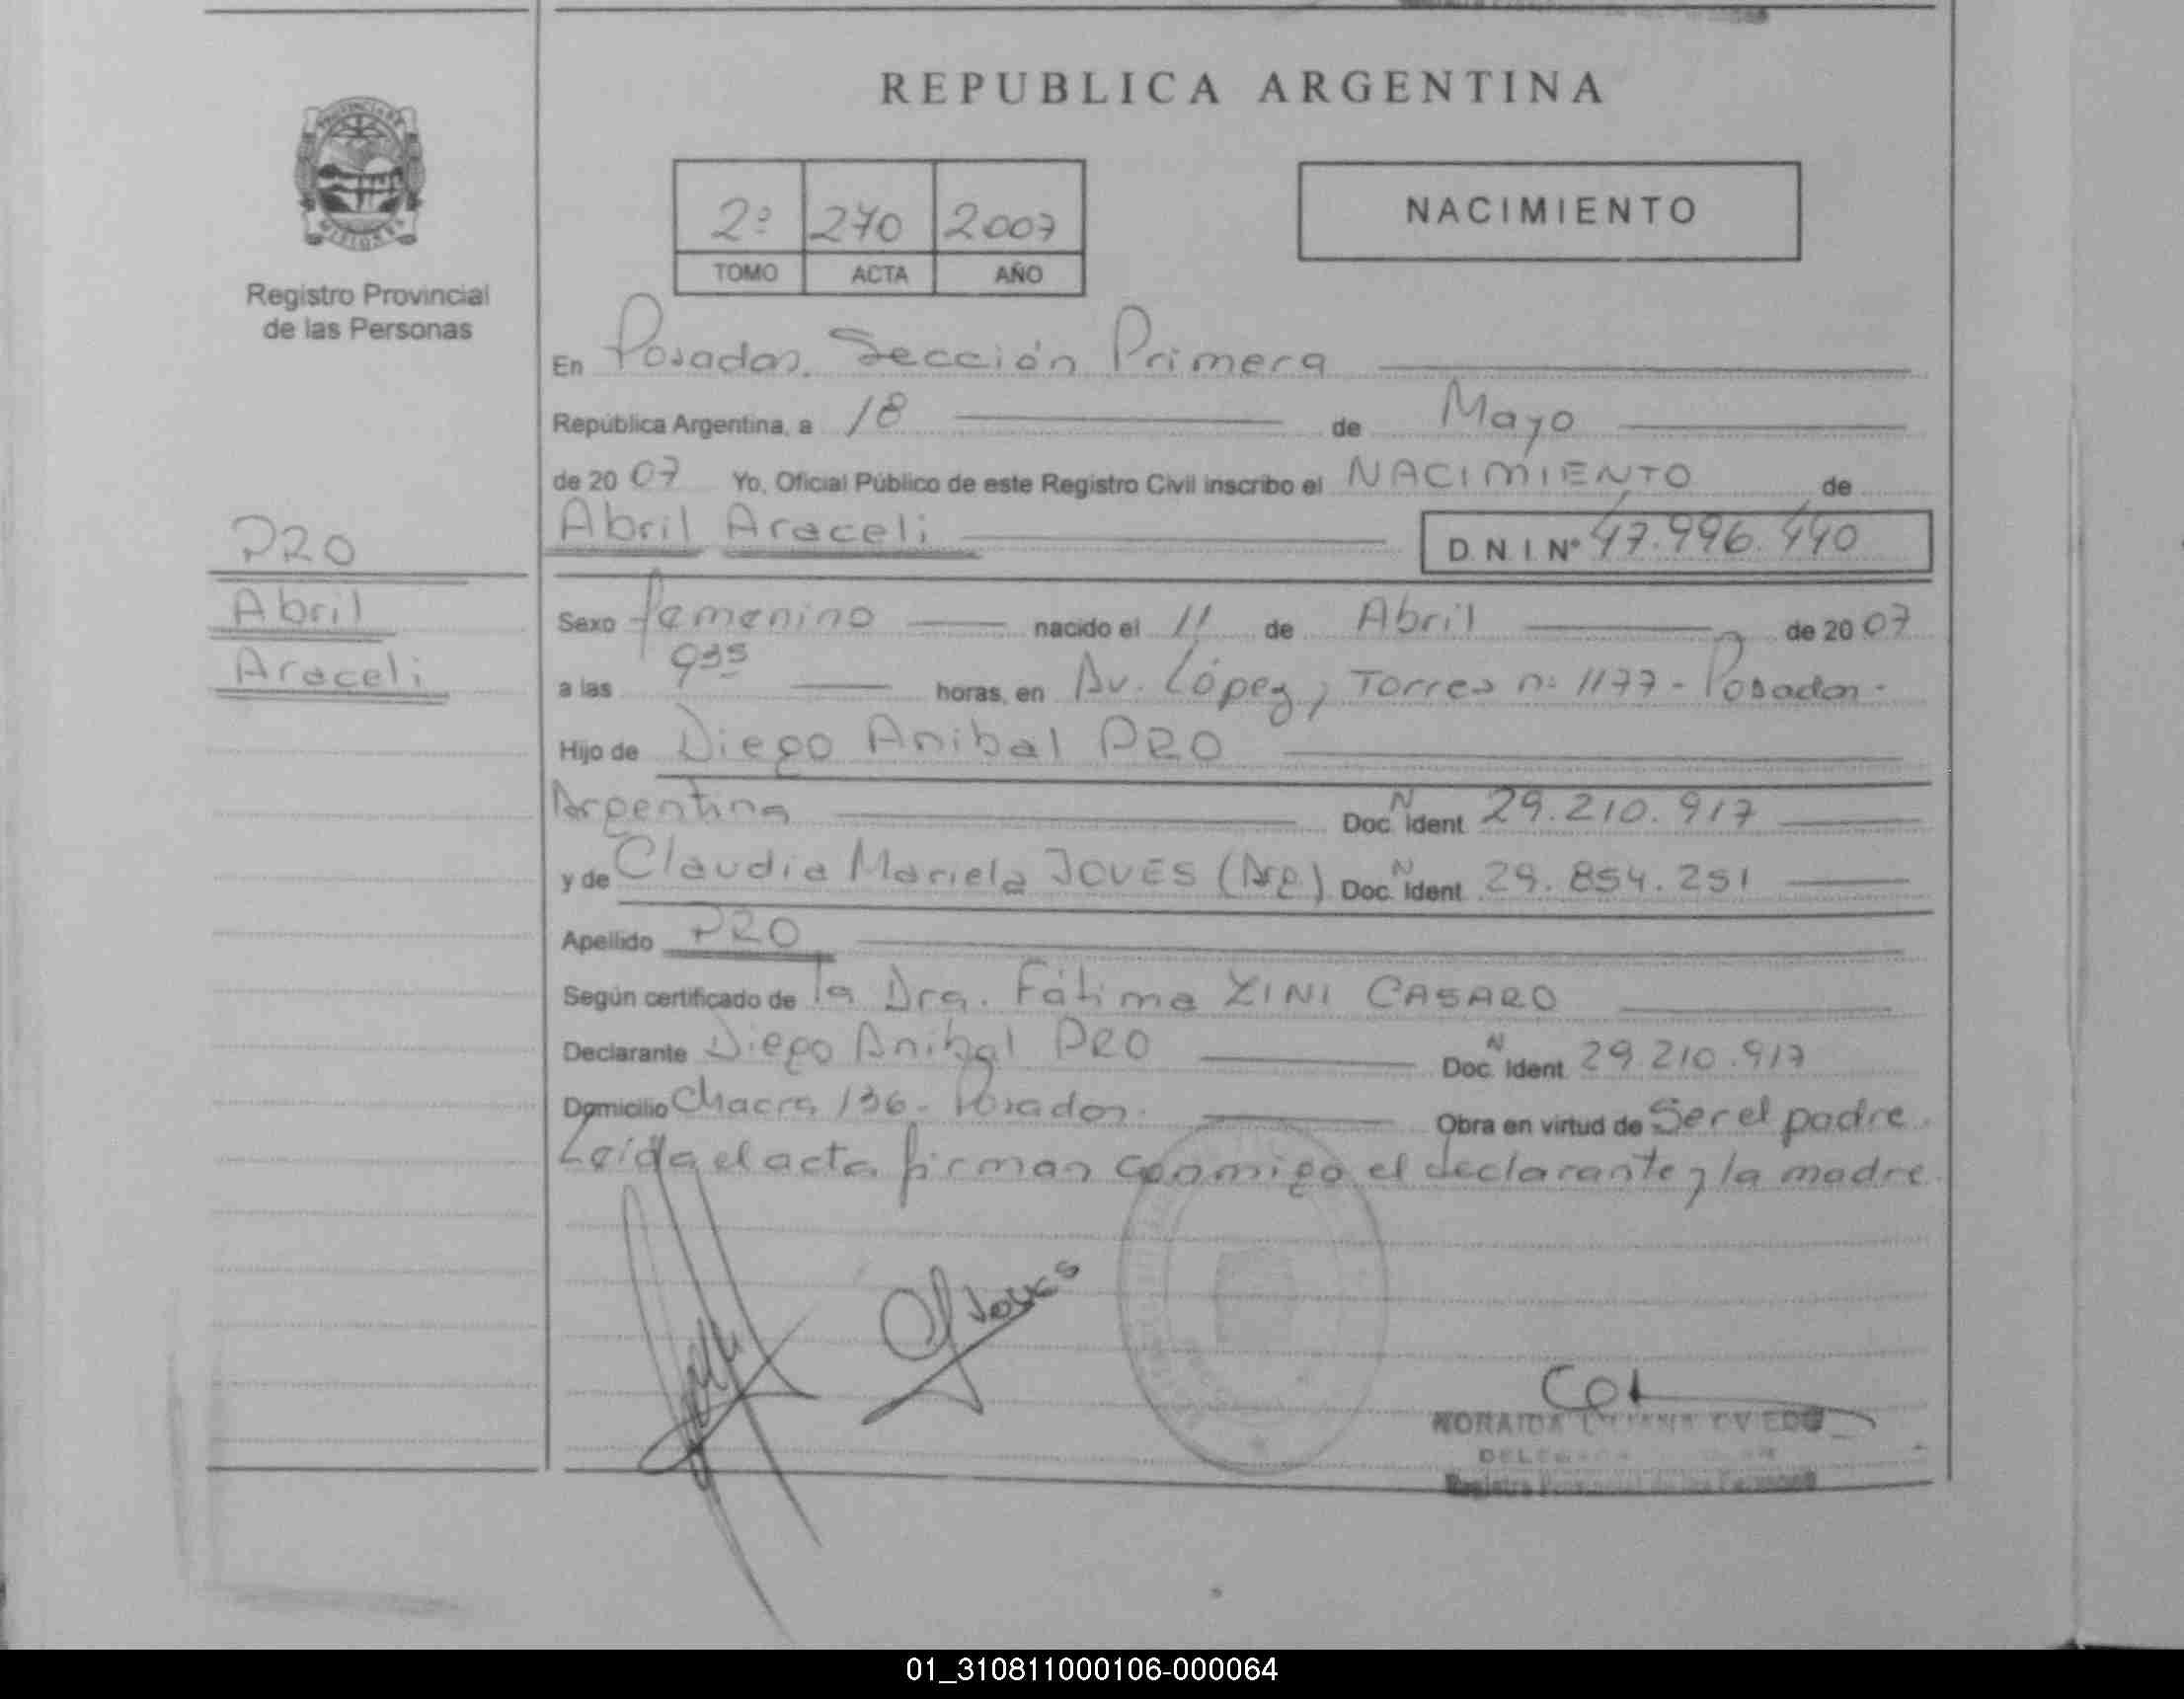 REPUBLICA ARGENTINA
PROVINCIA DE MISIONES
Registro Provincial
de las Personas
NACIMIENTO
2º 270 2007
TOMO ACTA AÑO
En Posadas, Sección Primera
República Argentina, a 18 de Mayo
de 2007 Yo, Oficial Público de este Registro Civil inscribo el NACIMIENTO de
Abril Araceli D.N.I. Nº 47.996.440
PRO
Abril
Araceli
Sexo femenino nacido el 11 de Abril de 2007
a las 9³⁵ horas, en Av. López y Torres nº 1177 - Posadas -
Hijo de Diego Anibal PRO
Argentina Doc. N Ident. 29.210.917
y de Claudia Mariela JOVES (Arg.) Doc. N Ident. 29.854.251
Apellido PRO
Según certificado de la Dra. Fátima ZINI CASARO
Declarante Diego Anibal PRO Doc. N Ident. 29.210.917
Domicilio Chacra 136 - Posadas. Obra en virtud de Ser el padre.
Leída el acta firman conmigo el declarante y la madre.
Joves
NORAIDA LILIANA OVIEDO
Registro Provincial de las Personas
01_310811000106-000064